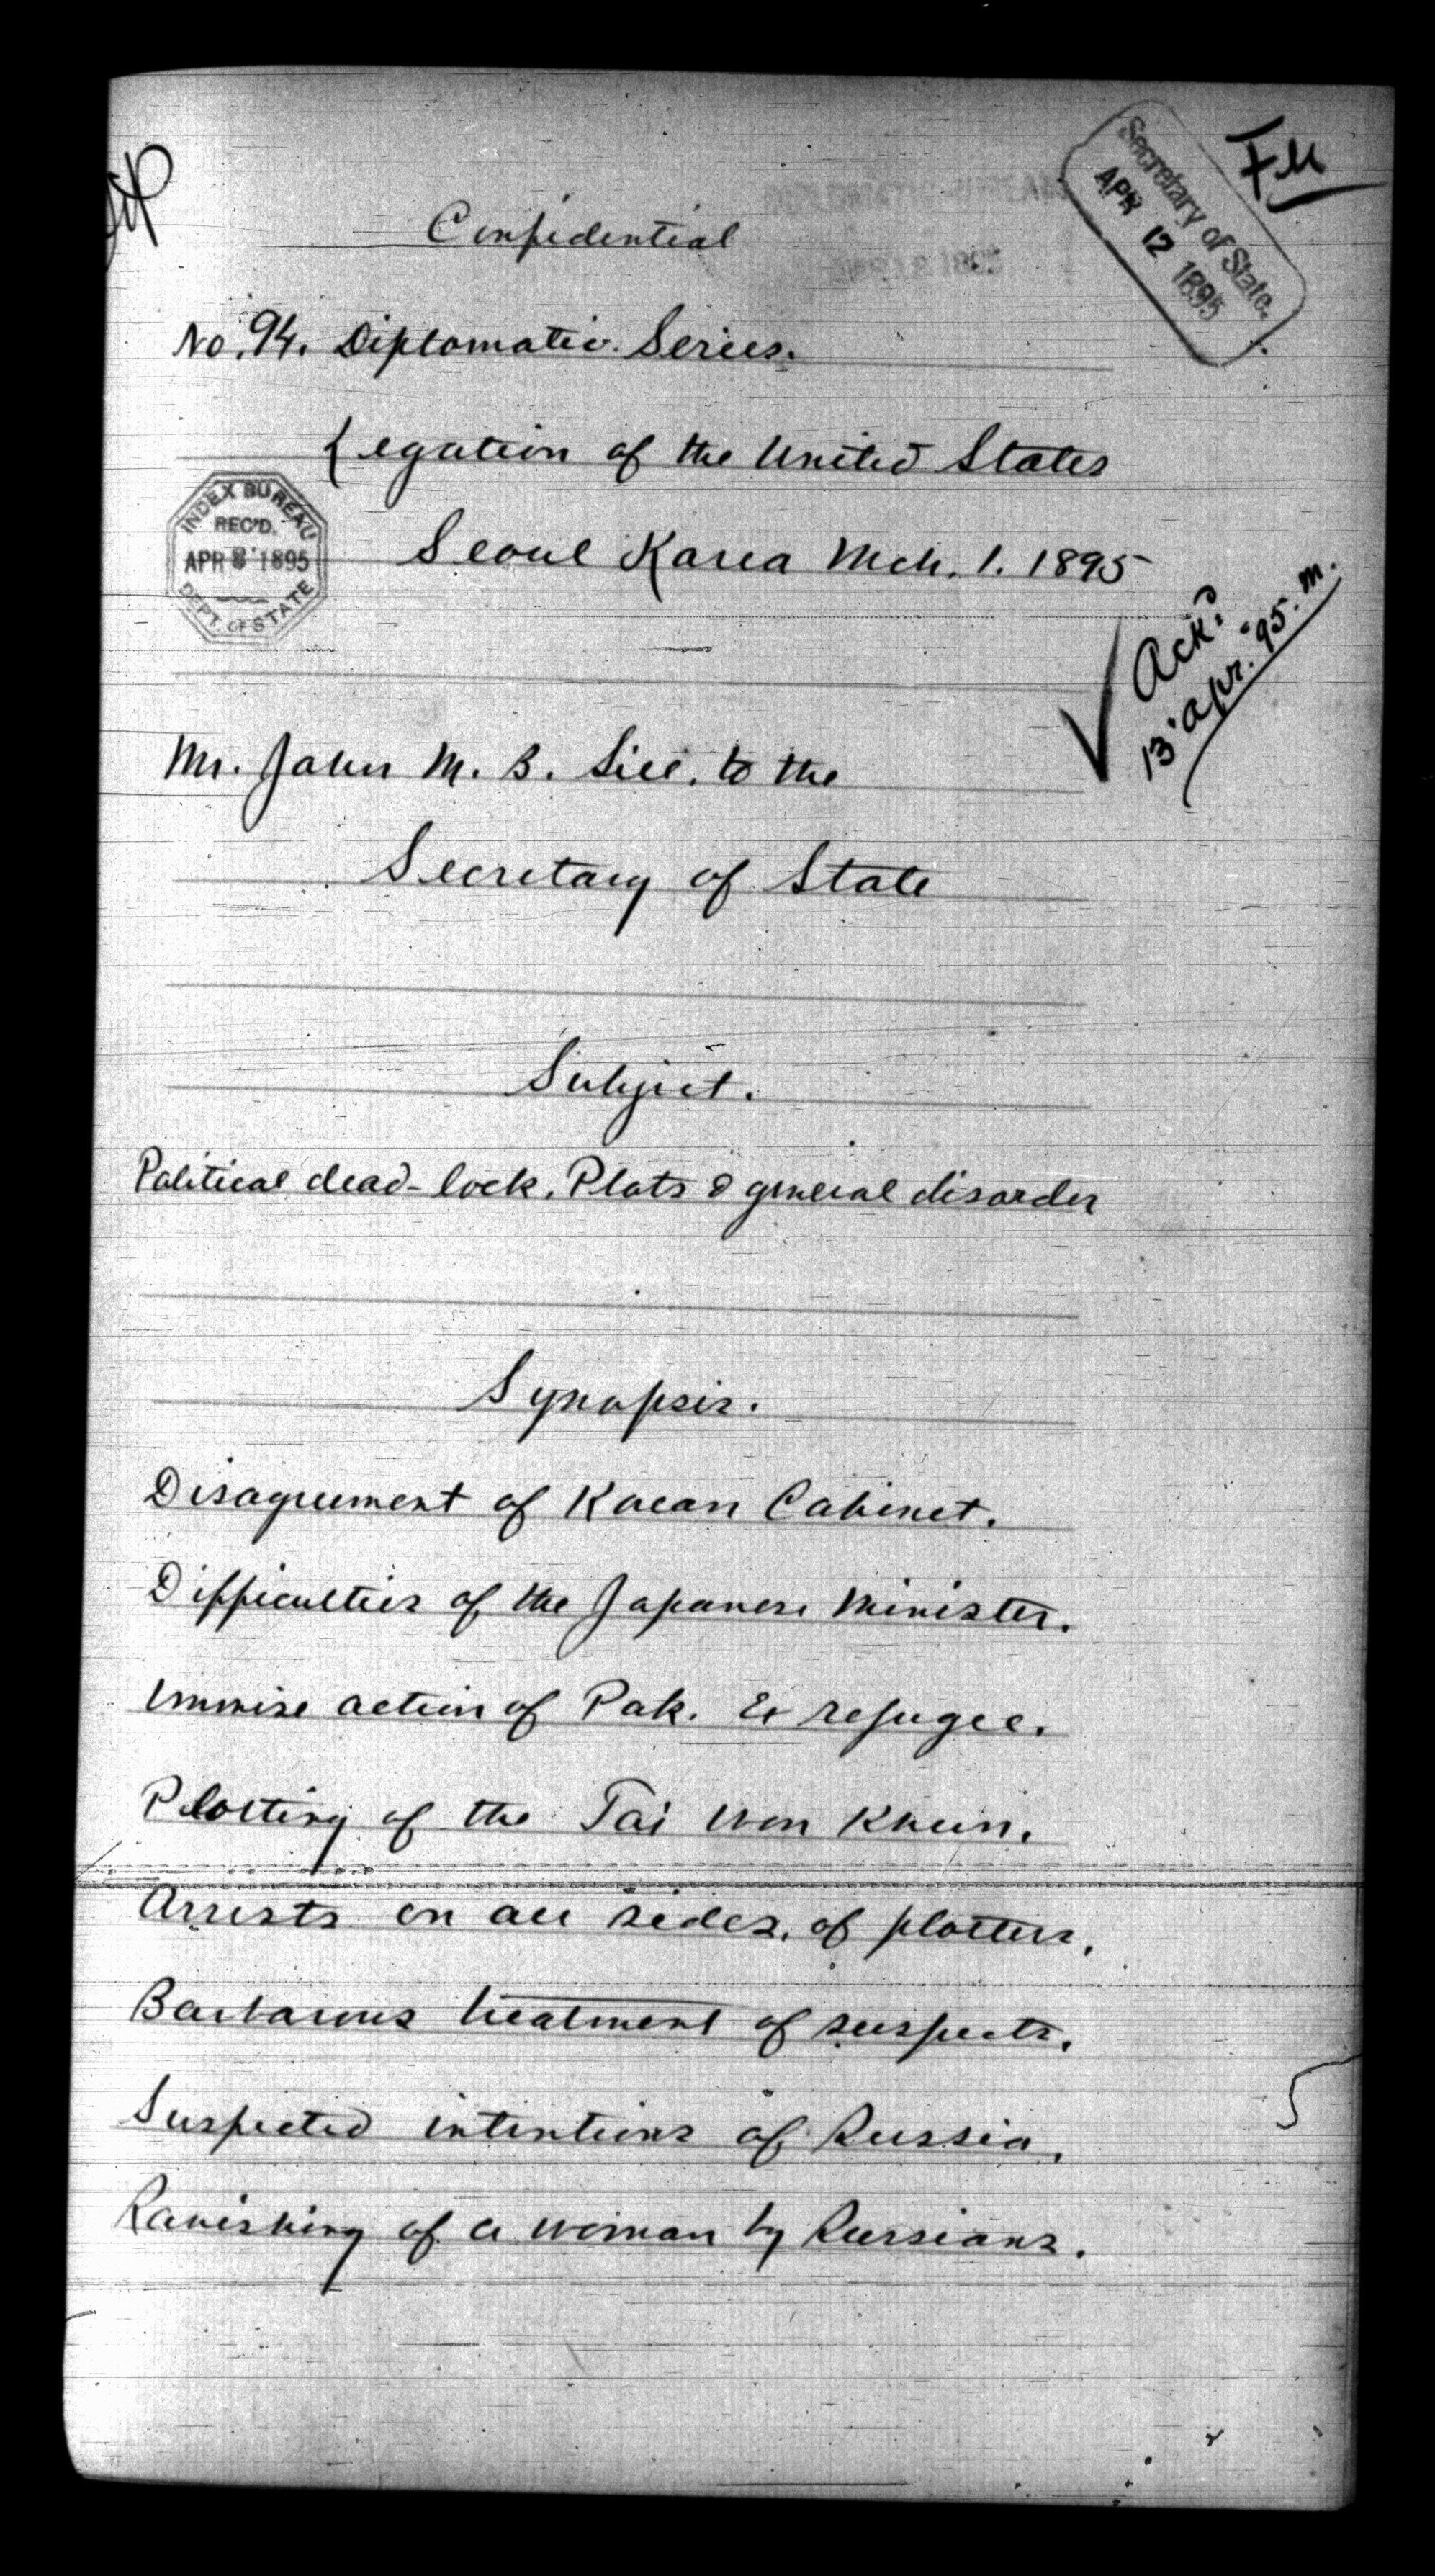 Confidential
Secretary of State.
APR 12 1895
No. 94. Diplomatic Series.
Legation of the United States
INDEX BUREAU
REC'D.
APR 8 1895
DEPT. OF STATE
Seoul Korea Mch. 1. 1895
Ackd
13 Apr. '95. M.
Mr. John M. B. Sill. to the
Secretary of State
Subject.
Political dead-lock. Plots & general disorder
Synopsis.
Disagreement of Korean Cabinet.
Difficulties of the Japanese Minister.
Unwise action of Pak. Ex refugee.
Plotting of the Tai Won Khun.
Arrests on all sides, of plotters.
Barbarous treatment of suspects.
Suspected intentions of Russia.
Ravishing of a woman by Russians.